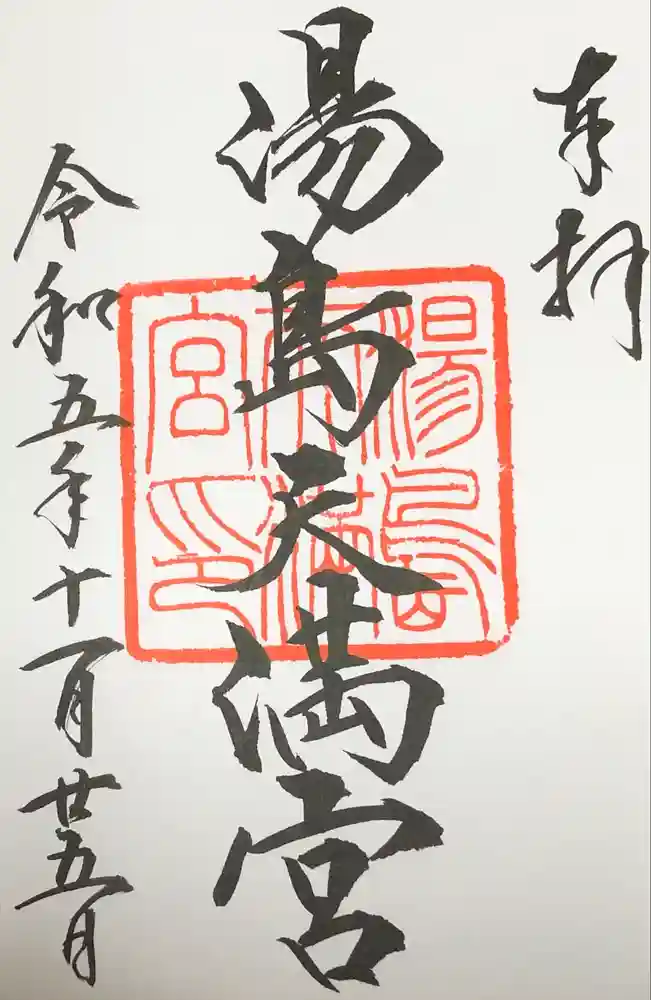 奉拝
湯島天満宮
湯島
天満
宮印
令和五年十一月廿五日